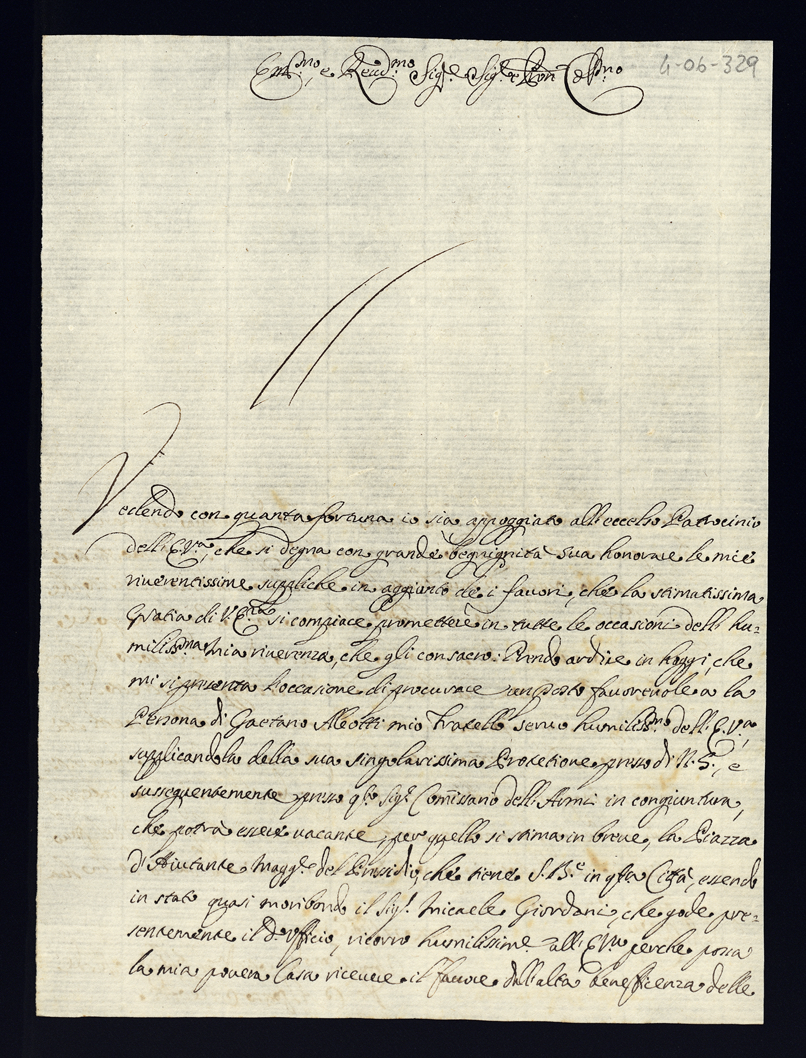 Em.mo, e Reud.mo Sig.e Sig.e Pron Col.mo
4-06-329
Vedendo con quanta fortuna io sia appoggiato all'eccelso Patrocinio
dell'E.V.ra, che si degna con grande begnignità sua honorare le mie
riuerentissime suppliche in aggiunto de i fauori, che la stimatissima
Gratia di V.E.nza si compiace promettere in tutte le occasioni dell' hu=
miliss.ma mia riuerenza, che gli consacro: Prendo ardire in hoggi, che
mi si presenta l'occasione di procurare un posto fauoreuole a la
Persona di Gaetano Aleotti mio Fratello seruo humiliss.mo dell'E.V.ra
supplicandola della sua singolarissima Protetione presso di N.S., e
susseguentemente presso q.to Sig.r Comissario dell'Armi in congiuntura,
che potrà essere uacante, per quello si stima in breue, la Piazza
d'Aiutante Magg.e del Presidio, che tiene S.B.e in q.sta Città, essendo
in stato quasi moribondo il Sig.r Micaele Giordani, che gode pre=
sentemente il d.o Vfficio, ricorro humilissime all'E.V.ra perche possa
la mia pouera Casa riceuere il fauore dall'alta beneficenza delle